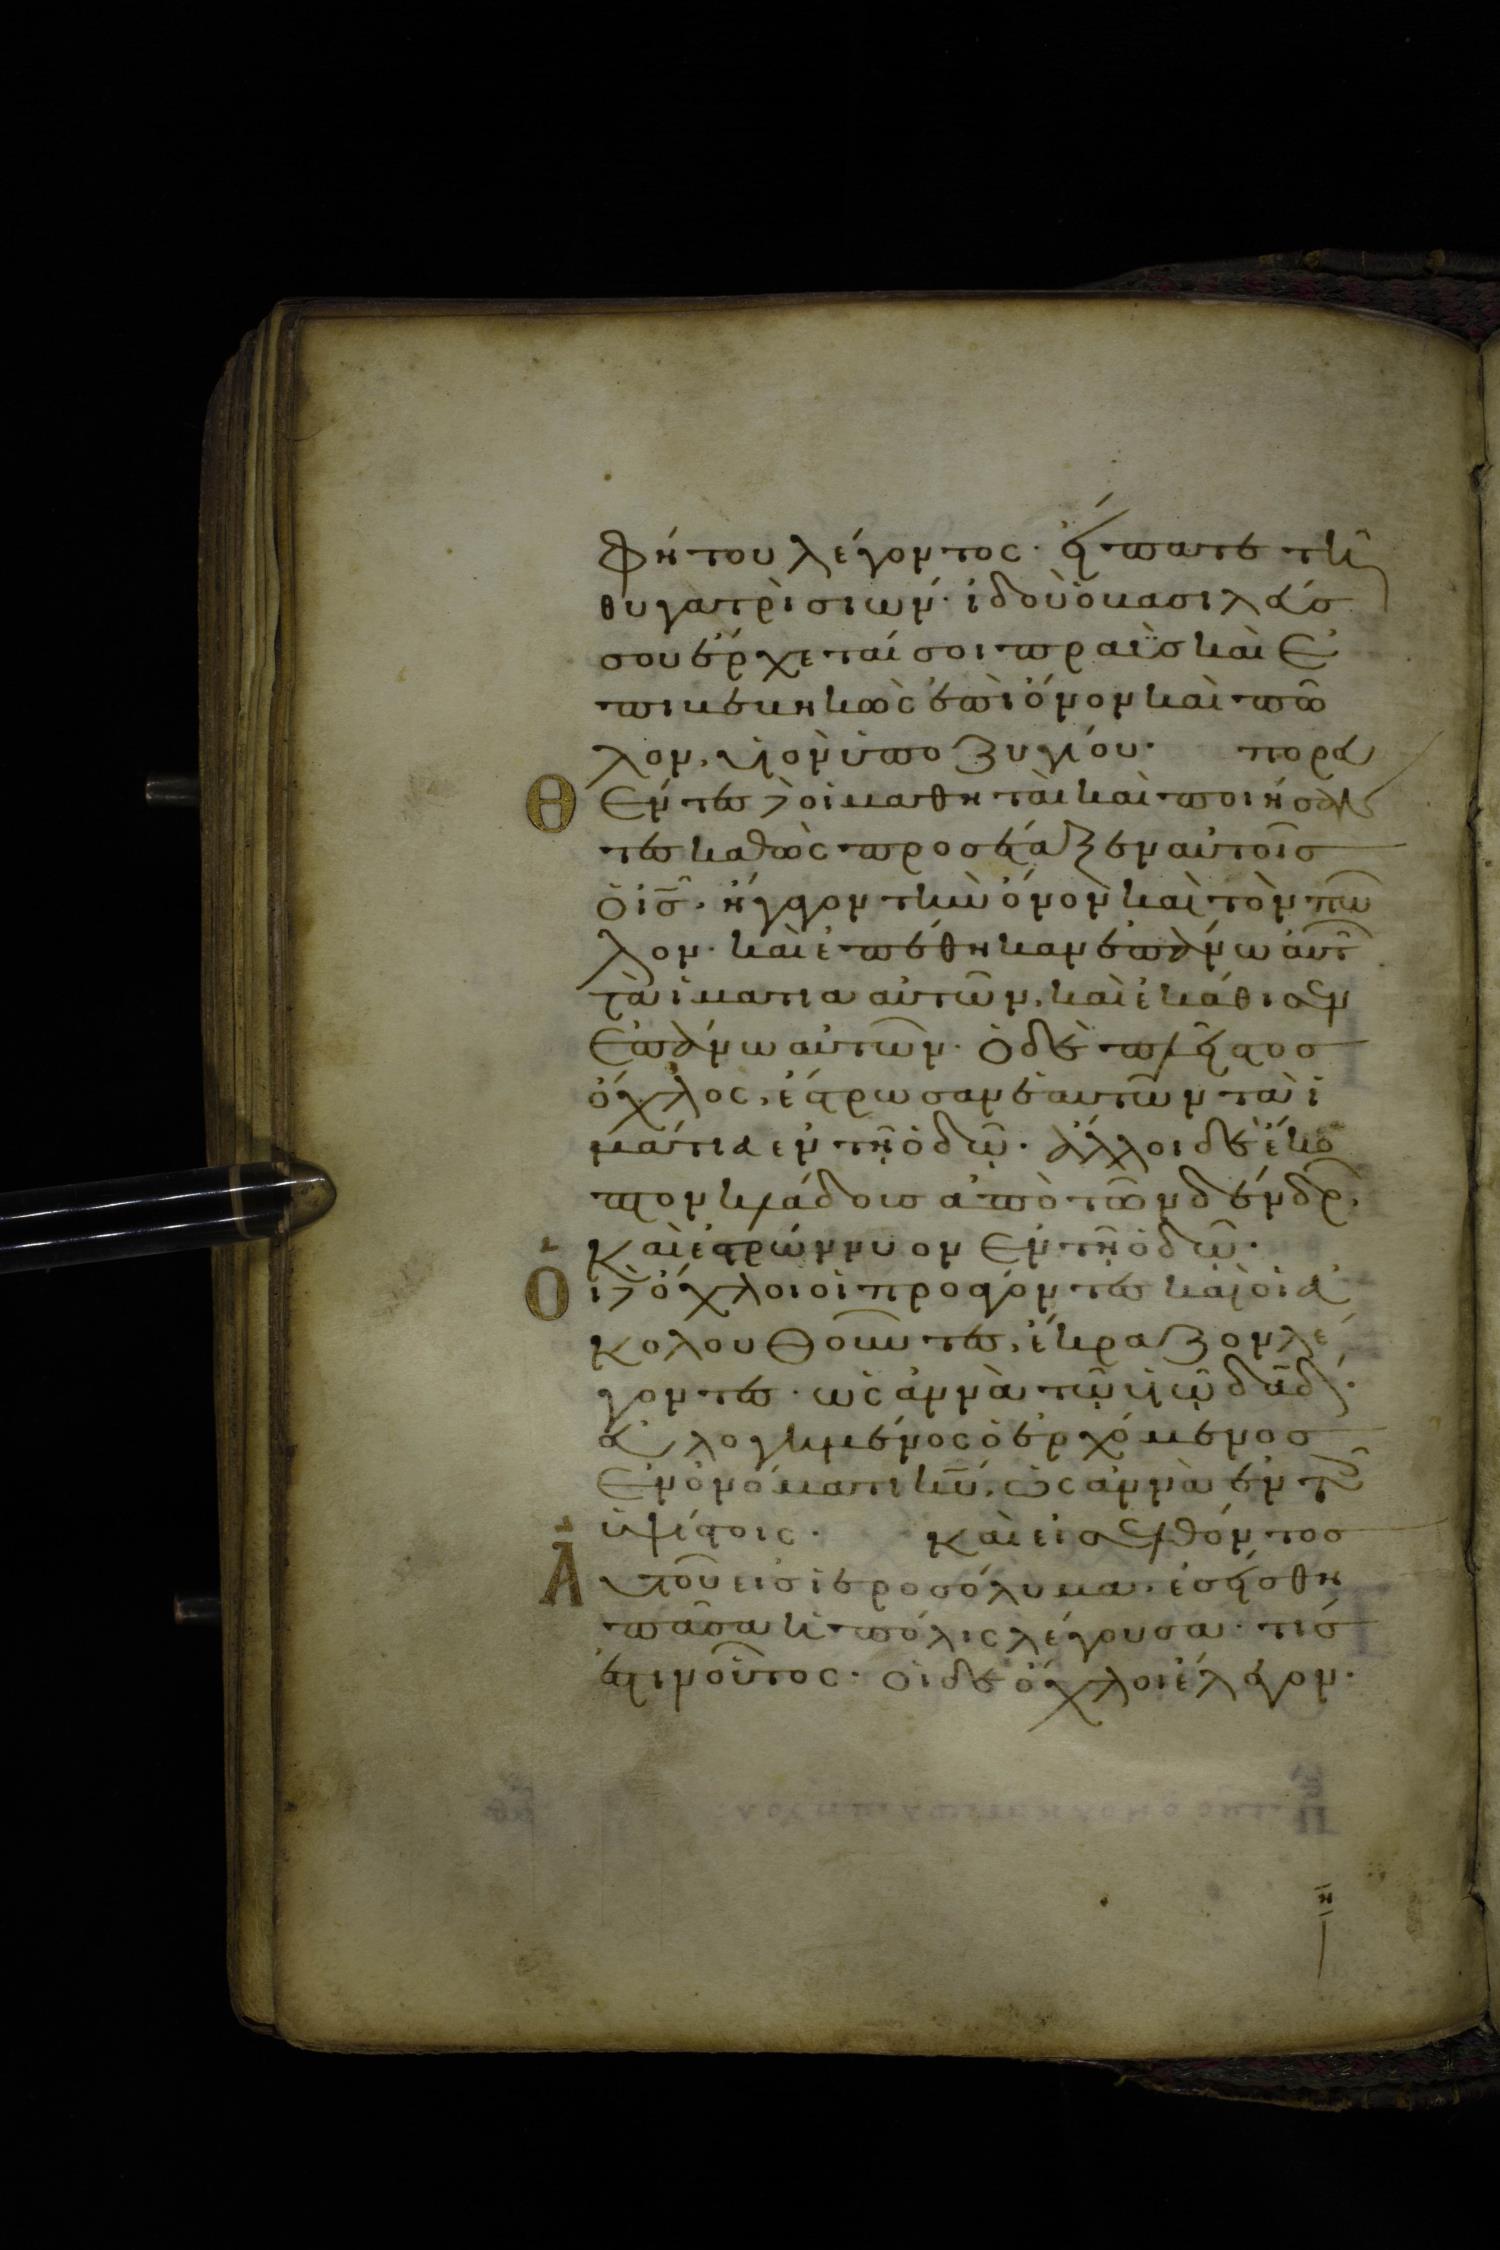 φήτου λέγοντος· εἴπατε τῆ
θυγατρὶ σιών· ἰδοὺ ὁ βασιλεύσ
σου ἔρχεταί σοι πραῢσ καὶ ἐ
πιβεβηκὼς ἐπὶ ὄνον καὶ πῶ
λον, υἱὸν ὑποζυγίου· πορευ
Θ ἐντες δὲ οἱ μαθηταὶ καὶ ποιήσαν
τες καθὼς προσέταξεν αὐτοῖσ
ὁ ις̅· ἤγαγον τὴν ὄνον καὶ τὸν πῶ
λον· καὶ ἐπέθηκαν ἐπάνω αὐτ
τὰ ἱμάτια αὐτῶν, καὶ ἐκάθισεν
ἐπάνω αὐτῶν· ὁ δὲ πλεῖστοσ
ὄχλος, ἔστρωσαν ἑαυτῶν τὰ ἱ
μάτια ἐν τῆ ὁδῶ· ἄλλοι δὲ ἔκο
πτον κλάδουσ ἀπὸ τῶν δένδρ,
καὶ ἐστρώννυον ἐν τῆ ὁδῶ·
Ο ι δὲ ὄχλοι οἱ προάγοντες καὶ οἱ ἀ
κολουθοῦντες, ἔκραζον λέ
γοντες· ὡς ἀννὰ τῶ υἱῶ δᾱδ·
εὐλογημένος ὁ ἐρχόμενοσ
ἐν ὀνόματι κῡ, ὡς ἀννὰ ἐν τοῖς
ὑψίστοις· καὶ εἰσελθόντοσ
Α ὐτοῦ εἰσ ἱεροσόλυμα, ἐσείσθη
πᾶσα ἡ πόλις λέγουσα· τίσ
ἐστιν οὗτος· οἱ δὲ ὄχλοι ἔλεγον·
η̅